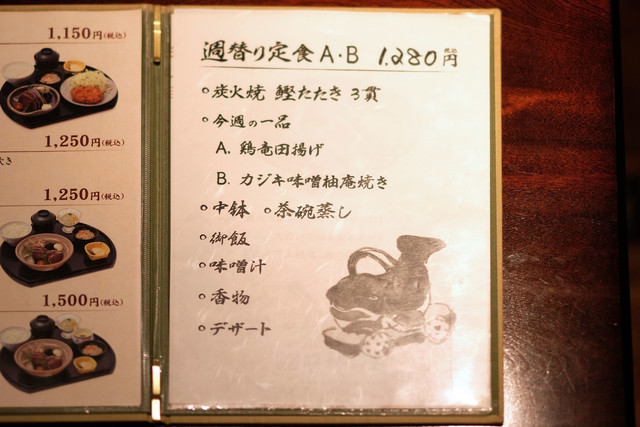 1,150円(税込)
1,250円(税込)
1,250円(税込)
1,500円(税込)
週替り定食 A・B 1,280円 税込
○炭火焼 鰹たたき 3貫
○今週の一品
A. 鶏竜田揚げ
B. カジキ味噌柚庵焼き
○中鉢 ○茶碗蒸し
○御飯
○味噌汁
○香物
○デザート